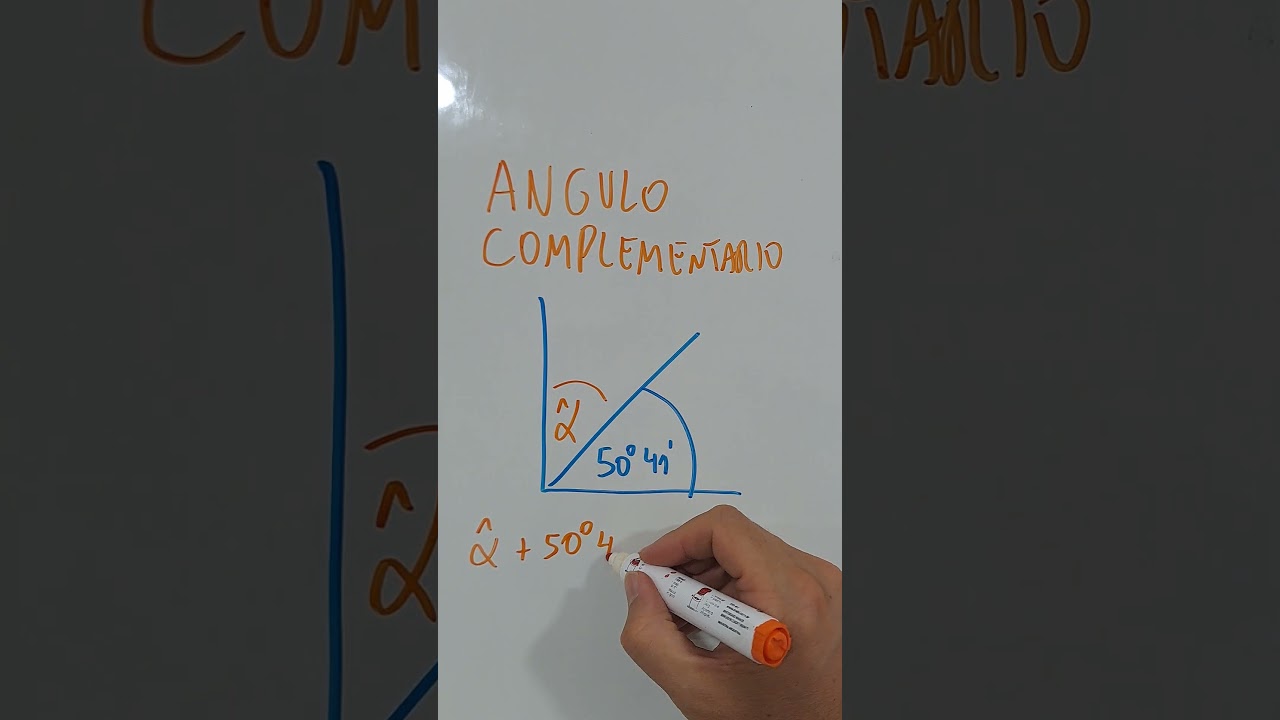 ANGULO
COMPLEMENTARIO
α̂
50° 41'
α̂ + 50° 4